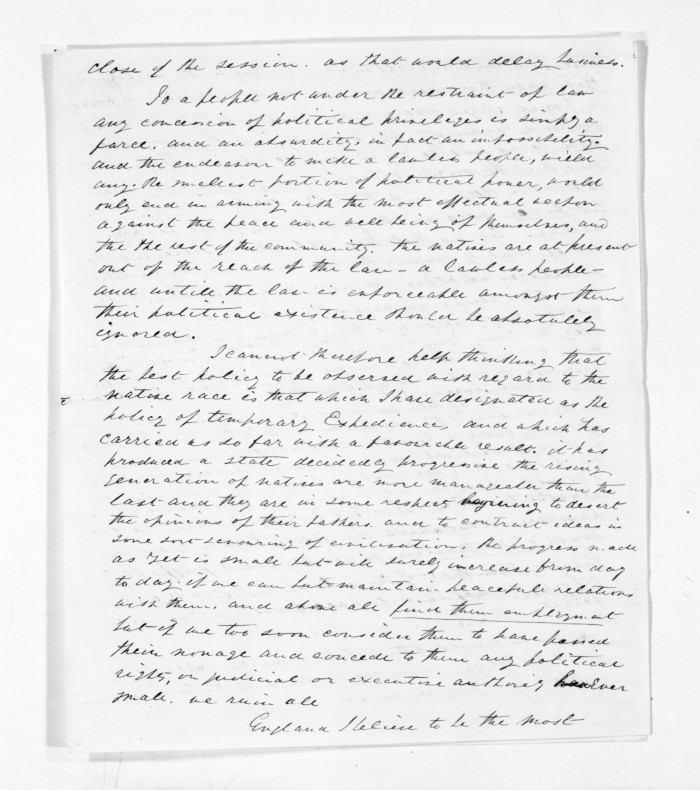 close of the session. as that would delay business.
To a people not under the restraint of law
any concession of political privileges is simply a
farce. and an absurdity, in fact an impossibility.
and the endeavour to make a lawless people, wield
any. the smallest portion of political power, would
only end in arming with the most effectual weapon
against the peace and well being of themselves, and
the the rest of the community. the natives are at present
out of the reach of the law - a lawless people -
and untill the law is enforceable amongst them
their political existence should be absolutely
ignored.
I cannot therefore help thinking that
the best policy to be observed with regard to the
native race is that which I have designated as the
policy of temporary Expedience, and which has
carried us so far with a favourable result. it has
produced a state decidedly progressive the rising
generation of natives are more manageable than the
last and they are in some respects begining to desert
the opinions of their fathers. and to contract ideas in
some sort savouring of civilisation. the progress made
as yet is small but will surely increase from day
to day. if we can but maintain peaceful relations
with them. and above all find them employment
but if we too soon consider them to have passed
their nonage and concede to them any political
rights, or judicial or executive authority however
small. we ruin all
England I believe to be the most